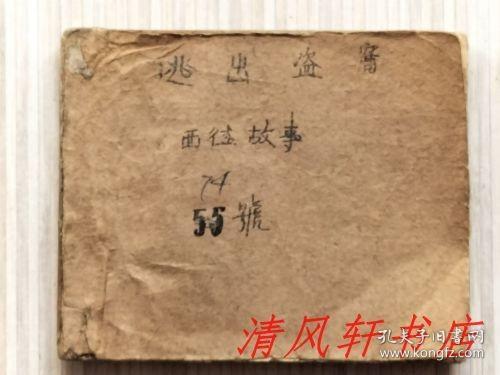 逃出盗窟
西德故事
74
55號
清风轩书店
孔夫子旧书网
www.kongfz.com